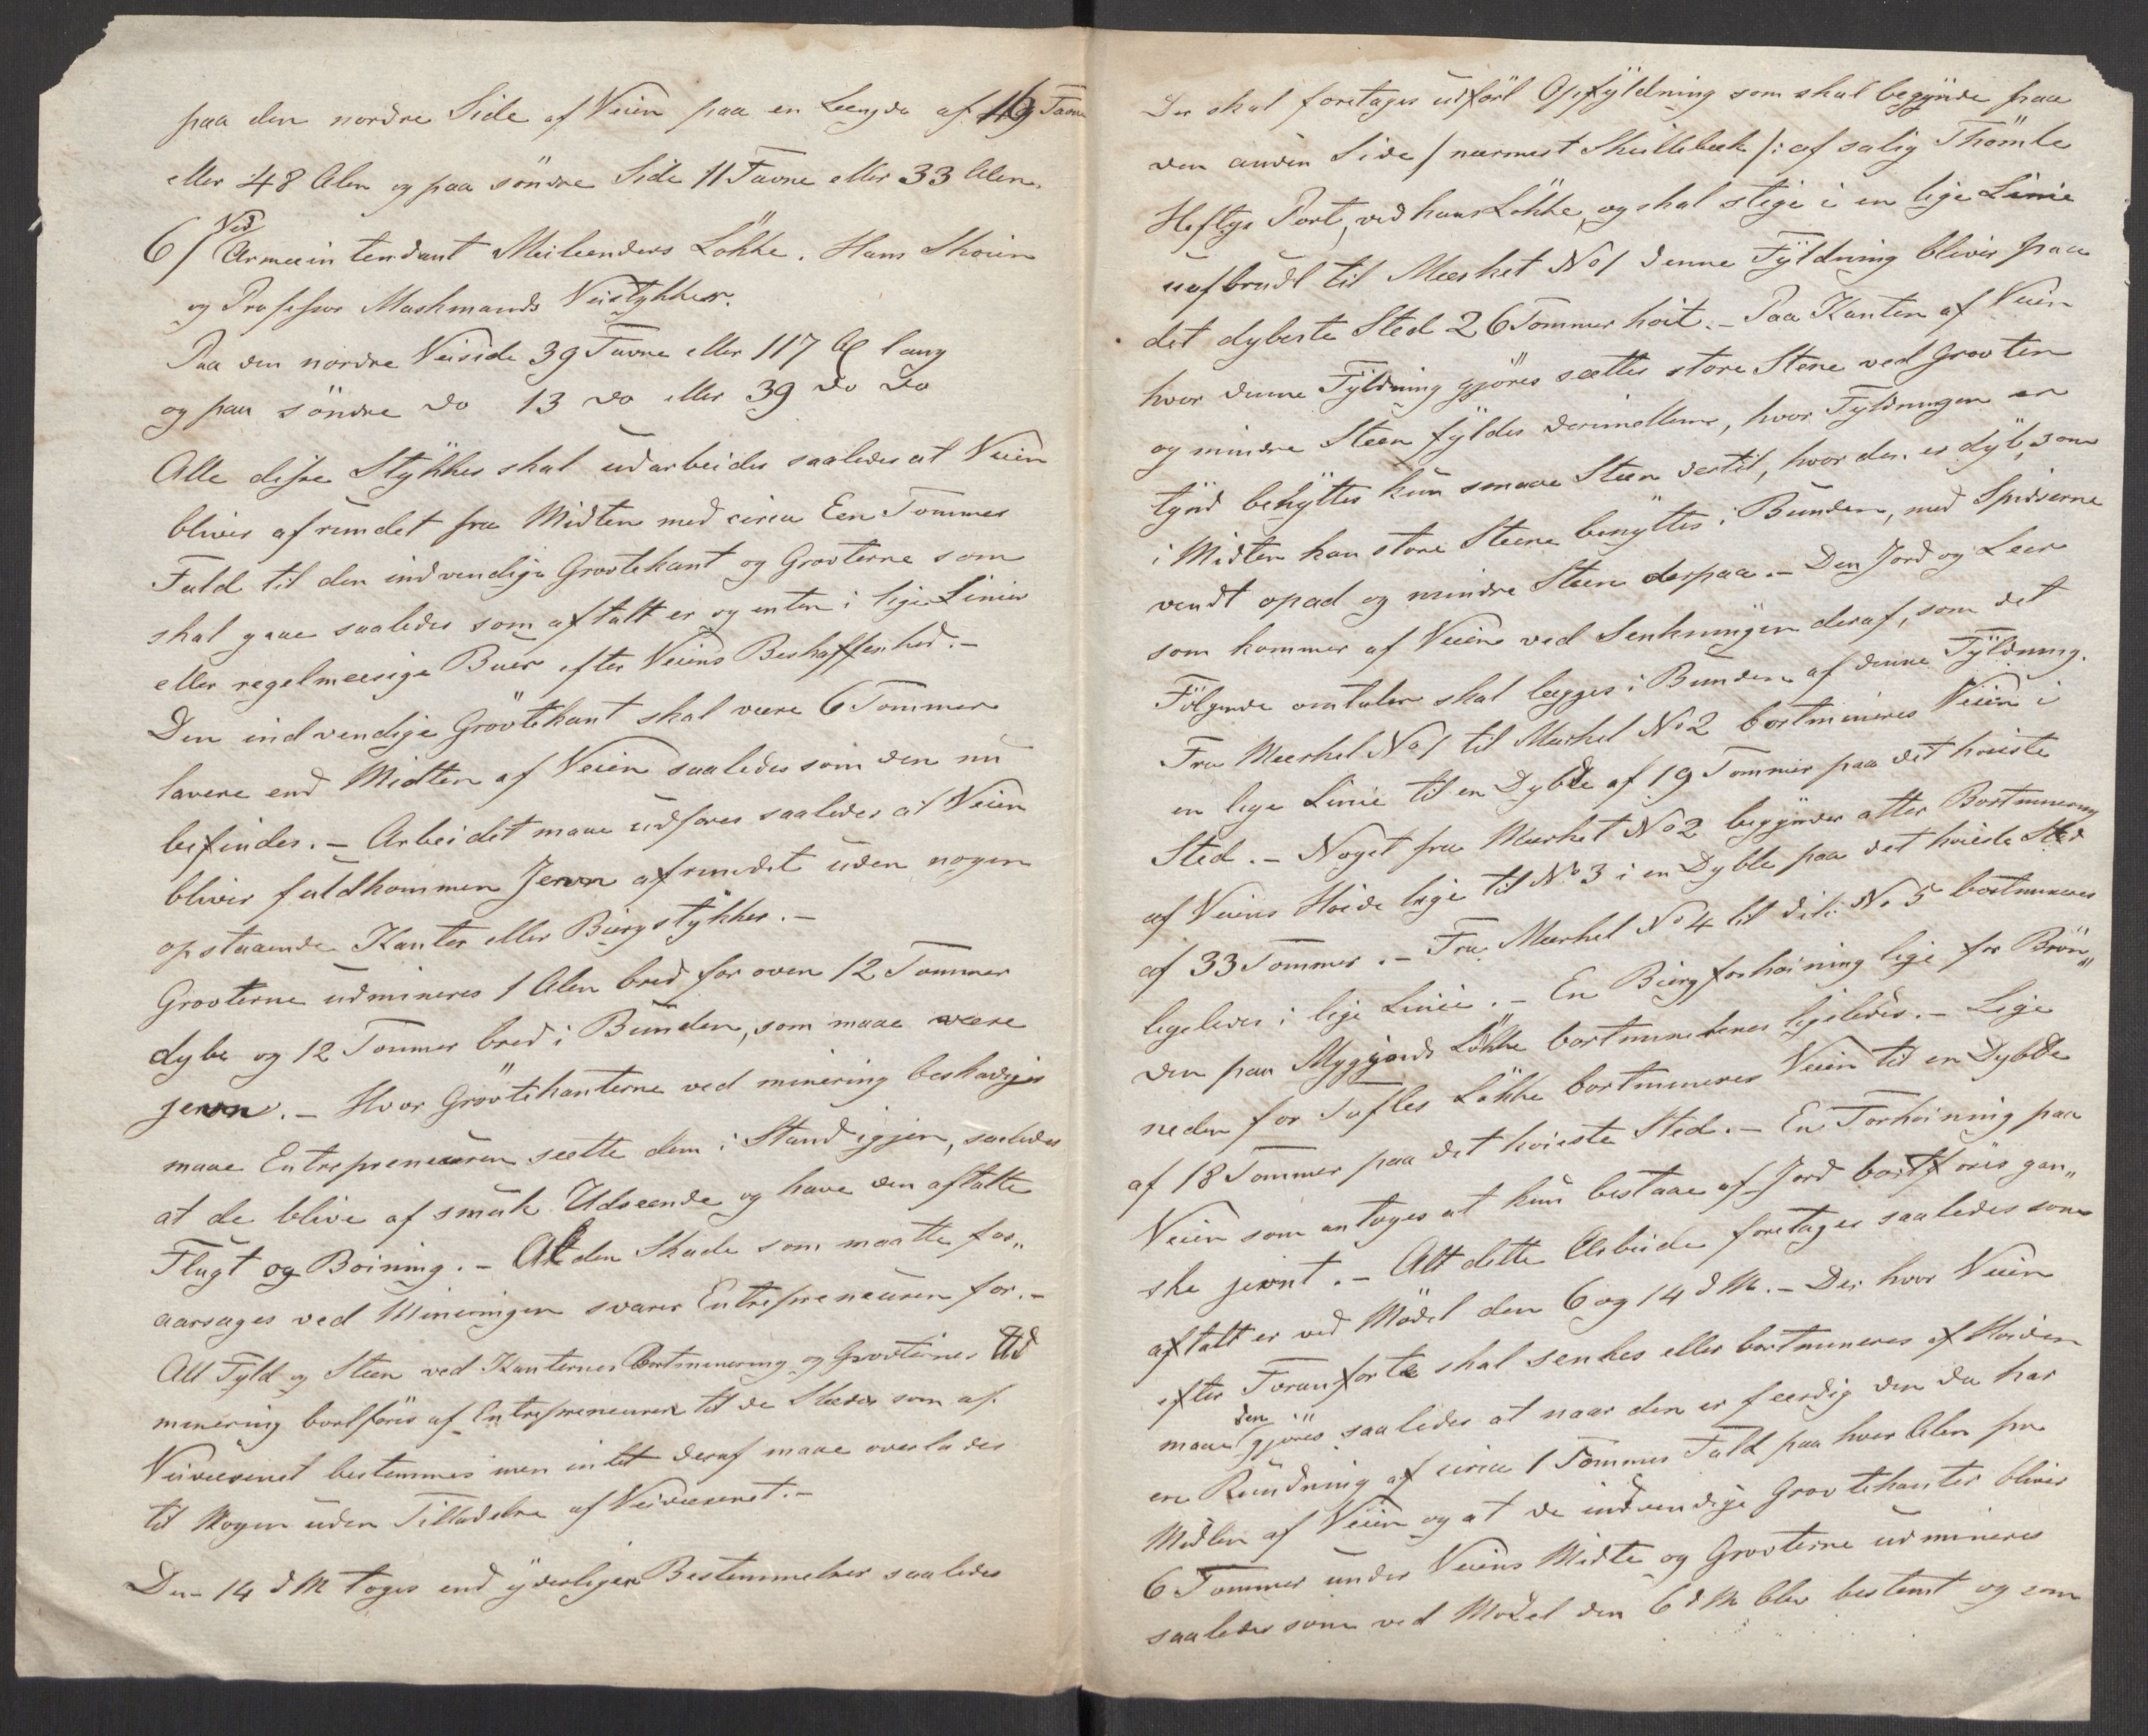 paa den nordre Side af Veien paa en Længde af 16 Favne
eller 48 Alen og paa söndre Side 11 Favne eller 33 Alen.
6/ Ved Armeeintendant Meilænders Lökke. Hans Skoien
og Professor Maskmands Veistykker.
Paa den nordre Veiside 39 Favne eller 117 Al lang
og paa söndre do 13 do eller 39 do do
Alle disse Stykker skal udarbeides saaledes at Veien
bliver afrundet fra Midten med circa Een Tommes
Fald til den indvendige Grøftekant og Grøfterne som
skal gaae saaledes som aftalt er og enten i lige Linier
eller regelmæsige Buer efter Veiens Beskaffenhed. -
Den indvendige Gröftekant skal være 6 Tommer
lavere end Midten af Veien saaledes som den nu
befindes. - Arbeidet maae udföres saaledes at Veien
bliver fuldkommen Jevn afrundet uden nogen
opstaaende Kanter eller Biergstykker. -
Grøfterne udmineres 1 Alen bred for oven 12 Tommer
dybe og 12 Tommer bred i Bunden, som maae være
jevn. - Hvor Gröftekanterne ved minering beskadiges
maae Entrepreneuren sætte dem i Stand igjen, saaledes
at de blive af smuk Udseende og have den aftalte
Flugt og Boining. - Al den Skade som maatte for„
aarsages ved Mineringen svarer Entrepreneuren for. -
All Fyld og Steen ved Kanternes Bortminering og Grøfternes Ud
minering bortföres af Entrepreneuren til de Steder som af
Veivæsenet bestemmes men intet deraf maae overlades
til Nogen uden Tilladelse af Veivæsenet. -
Den 14 d M toges end yderligere Bestemmelser saaledes
Der skal foretages udförl Opfyldning som skal begynde paa
den anden Side / nærmest Skillebæk /: af salig Thomle
Heftys Port, ved hans Lökke, og skal stige i en lige Linie
uafbrudt til Mærket No 1 denne Fyldning bliver paa
det dybeste Sted 26 Tommer höit. - Paa Kanten af Veien
hvor denne Fyldning gjöres sættes store Stene ved Grøften
og mindre Steen fyldes derimellem, hvor Fyldningen er
tynd behyttes kun smaae Steen dertil, hvor den er dyb, som
i Midten kan store Steene benyttes i Bunden, med Spidserne
vendt opad og mindre Steen derpaa. - Den Jord og Leer
som kommer af Veien ved Senkningen deraf, som det
Fölgende omtaler skal lægges i Bunden af denne Fyldning.
Fra Mærket No 1 til Mærket No 2 bortmineres Veien i
en lige Linie til en Dybde af 19 Tommer paa det höieste
Sted. - Noget fra Mærket No 2 begynder atter Bortminering
af Veiens Höide lige til No 3 i en Dybde paa det höieste Sted
af 33 Tommer. - Fra Mærket No 4 til dito No 5 bortmineres
ligeledes i lige Linie. - En Biergforhöining lige for Brön„
den paa Myggjords Lökke bortmineres ligeledes. - Lige
neden for Tofles Lökke bortmineres Veien til en Dybde
af 18 Tommer paa det höieste Sted. - En Forhöining paa
Veien som antages at kun bestaae af Jord bortföres gan„
ske jevnt. - Alt dette Arbeide foretages saaledes som
aftalt er ved Mödet den 6 og 14 d M. - Der hvor Veien
efter Foranförte skal senkes eller bortmineres af Höiden
maae den gjöres saaledes at naar den er færdig den da har
en Rundning af circa 1 Tommes Fald paa hver Alen fra
Midten af Veien og at de indvendige Grøftekanter bliver
6 Tommer under Veiens Midte og Grøfterne udmineres
saaledes som ved Mödet den 6 d M blev bestemt og som